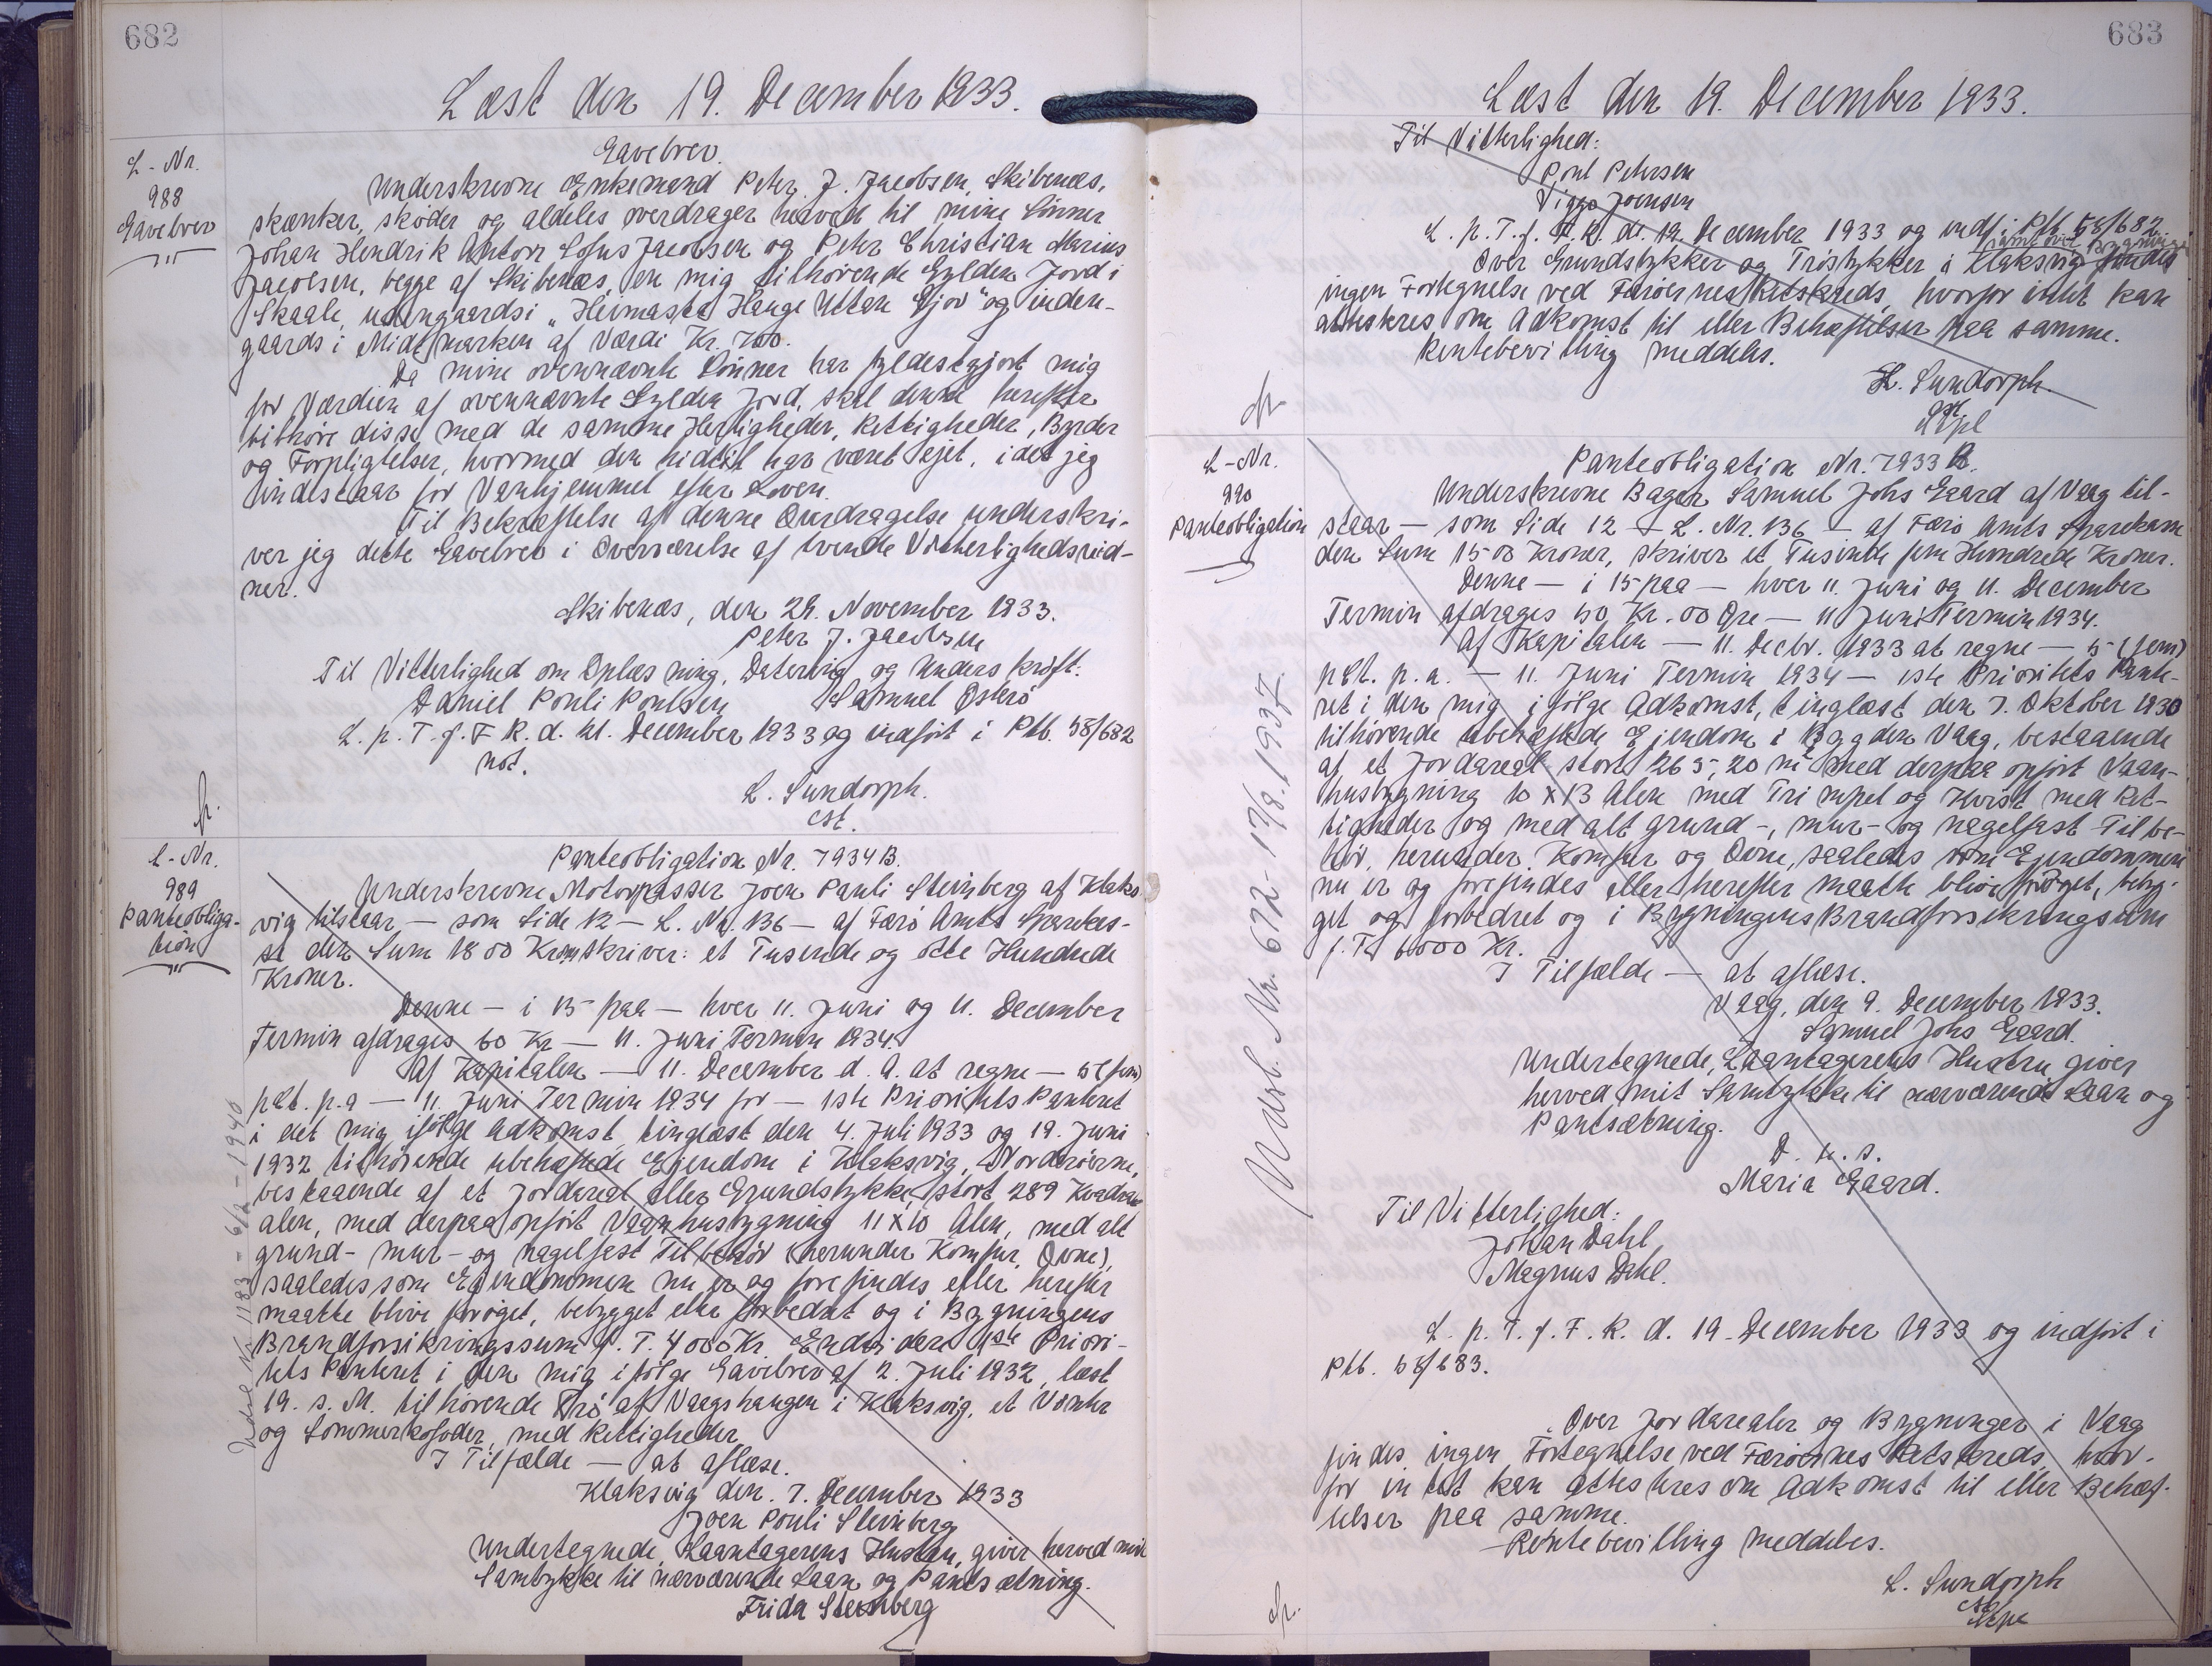 682
Læst den 19. December 1933.
L-Nr.
988
Gavebrev
Gavebrev.
Underskrevne Enkemand Peter J. Jacobsen, Skibenæs,
skænker, skøder og aldeles overdrager herved til mine Sönner
Johan Hendrik Anton Sofus Jacobsen og Peter Christian Marius
Jacobsen, begge af Skibenæs, en mig tilhørende Gylden Jord i
Skaale, udengaards i „Heimasta Hauge Uttan Gjov" og inden-
gaards i Midtmarken af Værdi Kr. 700.
Da mine ovennævnte Sönner har fyldestgjort mig
for Værdien af ovennævnte Gylden Jord, skal denne herefter
tilhøre disse med de samme Herligheder, Rettigheder, Byrder
og Forpligtelser, hvormed den hidtil har været ejet, idet jeg
indestaar for Vanhjemmel efter Loven.
Til Bekræftelse af denne Overdragelse underskri-
ver jeg dette Gavebrev i Overværelse af tvende Vitterlighedsvid-
ner.
Skibenæs, den 29. November 1933.
Peter J. Jacobsen
Til Vitterlighed om Oplæsning, Datering og Underskrift:
Daniel Pouli Poulsen Samuel Østerö
L. p. T. f. F. R. d. 19. December 1933 og indført i Ptb. 58/682
not.
L. Sundorph.
cst.
L-Nr.
989
Panteobliga-
tion
Panteobligation Nr. 7934 B.
Underskrevne Motorpasser Joen Pauli Steinberg af Klaks-
vig tilstaar — som Side 12 — L. Nr. 136 — af Færö Amts Sparekas-
se den Sum 1800 Kroner skriver: et Tusende og otte Hundrede
Kroner.
Denne — i 15 paa — hver 11. Juni og 11. December
Termin afdrages 60 Kr — 11. Juni Termin 1934.
Af Kapitalen — 11. December d. A. at regne — 5 (fem)
pct. p.a — 11. Juni Termin 1934 for — 1ste Prioritets Panteret
i det mig ifölge Adkomst, tinglæst den 4. Juli 1933 og 19. Juni
1932 tilhørende ubehæftede Ejendom i Klaksvig, Norderöerne,
bestaaende af et Jordareal eller Grundstykke, stort 289 Kvadrat
alen, med derpaa opført Vaanhusbygning 11 x 10 Alen, med alt
grund- mur- og nagelfast Tilbehör (herunder Komfur, Ovne),
saaledes som Ejendommen nu er og forefindes eller herefter
maatte blive forøget, bebygget eller forbedret og i Bygningens
Brandforsikringssum f. T. 4000 Kr. Endvidere 1ste Priori-
tets Panteret i den mig ifölge Gavebrev af 2. Juli 1932, læst
19. s. M. tilhørende Trö af Vaagshaugen i Klaksvig, et Vinter
og Sommerkofoder, med Rettigheder.
I Tilfælde — at aflæse.
Klaksvig den 7. December 1933
Joen Pouli Steinberg
Undertegnede, Laantagerens Hustru, giver herved mit
Samtykke til nærværende Laan og Pantsætning.
Frida Steinberg
Udsl. Nr. 1183 - 6/12 - 1940
683
Læst den 19. December 1933.
Til Vitterlighed:
Poul Petersen
Viggo Joensen
L. p. T. f. F. R. d. 19. December 1933 og indf. i Ptb. 58/682
samt over Bygninger
Over Grundstykker og Tröstykker i Klaksvig findes
ingen Fortegnelse ved Færöernes Retskreds, hvorfor intet kan
attesteres om Adkomst til eller Behæftelser paa samme.
Rentebevilling meddeles.
L. Sundorph.
cst
L-Nr.
990
Panteobligation
Panteobligation Nr. 7933 B.
Underskrevne Bager Samuel Johs Gaard af Vaag til-
staar — som Side 12 — L. Nr. 136 — af Færö Amts Sparekasse
den Sum 1500 Kroner, skriver et Tusinde fem Hundrede Kroner.
Denne — i 15 paa — hver 11. Juni og 11. December
Termin afdrages 50 Kr. 00 Øre — 11 Juni Termin 1934.
Af Kapitalen — 11. Decbr. 1933 at regne — 5 (fem)
pct. p. a. — 11. Juni Termin 1934 — 1ste Prioritets Pante-
ret i den mig ifölge Adkomst, tinglæst den 7. Oktober 1930
tilhørende ubehæftede Ejendom i Bygden Vaag, bestaaende
af et Jordareal stort 265,20 m² med derpaa opført Vaan-
husbygning 10 x 13 Alen med Trimpel og Kvist med Ret-
tigheder og med alt grund-, mur- og nagelfast Tilbe-
hör, herunder Komfur og Ovne, saaledes som Ejendommen
nu er og forefindes eller herefter maatte blive foröget, byg-
get og forbedret og i Bygningens Brandforsikringssum
f. T. 6000 Kr.
I Tilfælde — at aflæse.
Vaag, den 9. December 1933.
Samuel Johs Gaard.
Undertegnede, Laantagerens Hustru giver
herved mit Samtykke til nærværende Laan og
Pantsætning.
D. u. s.
Maria Gaard.
Til Vitterlighed:
Johan Dahl
Magnus Dahl.
L. p. T. f. F. R. d. 19. December 1933 og indført i
Ptb. 58/683.
Over Jordarealer og Bygninger i Vaag
findes ingen Fortegnelse ved Færöernes Retskreds, hvor-
for intet kan attesteres om Adkomst til eller Behæf-
telser paa samme.
Rentebevilling meddeles.
L. Sundorph
cst
Udsl. Nr. 672 - 17/8. 1937.